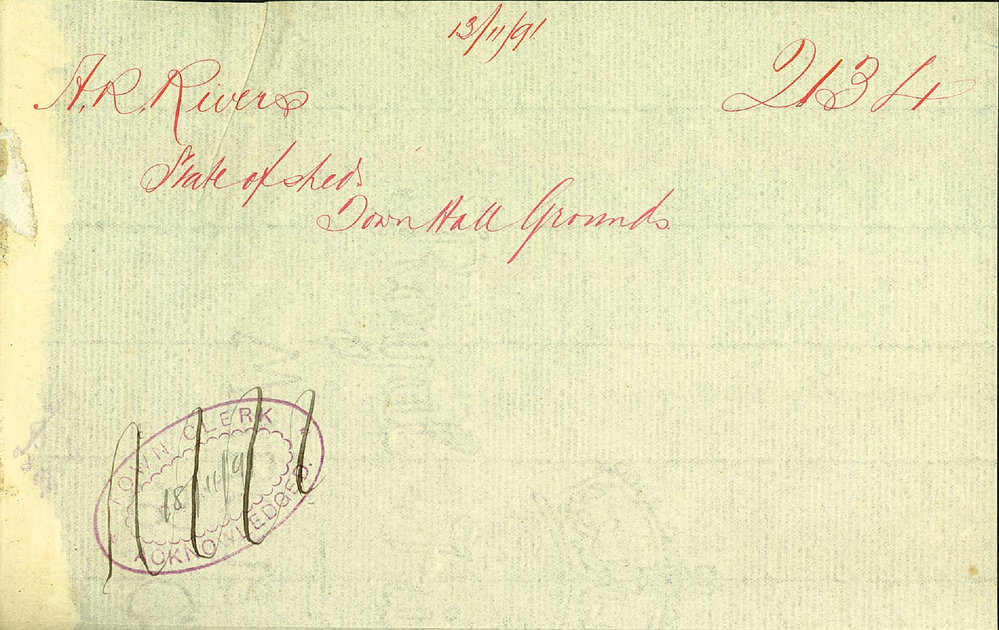 13/11/91
A. R. Rivers
2134
State of sheds
Town Hall Grounds
TOWN CLERK
18/11/91
ACKNOWLEDGED.